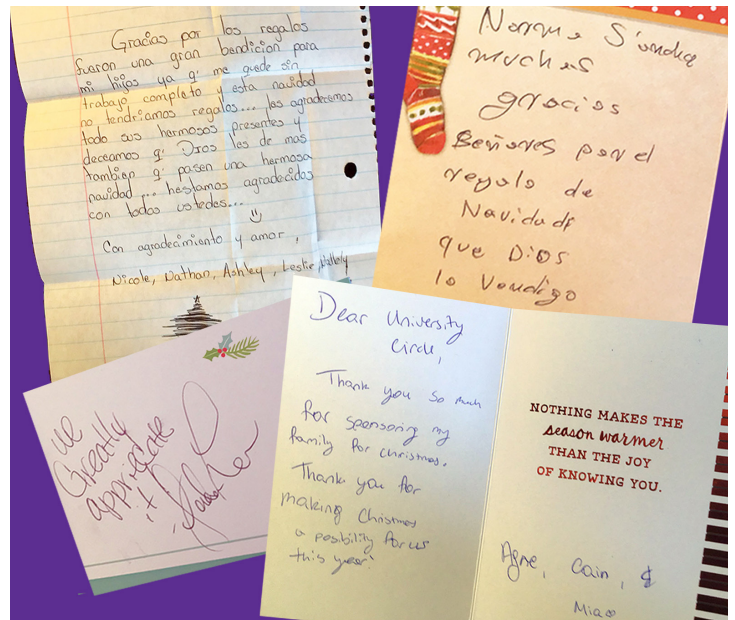 Gracias por los regalos
fueron una gran bendicion para
mi hijos ya q' me quede sin
trabajo completo y esta navidad
no tendriamos regalos... les agradecemos
todo sus hermosos presentes y
deceamos q' Dios les de mas
tambien q' pasen una hermosa
navidad... hestamos agradecidos
con todos ustedes...
Con agradecimiento y amor,
Nicole, Nathan, Ashley, Leslie,
Norma
muchas
gracias
Señores por el
regalo de
Navidad
que Dios
lo Vendigo
we
Greatly
appriciate
it
Dear University
Circle,
Thank you so much
for sponsoring my
family for christmas.
Thank you for
making Christmas
a posibility for us
this year!
NOTHING MAKES THE
season warmer
THAN THE JOY
OF KNOWING YOU.
Agne, Cain, &
Miao